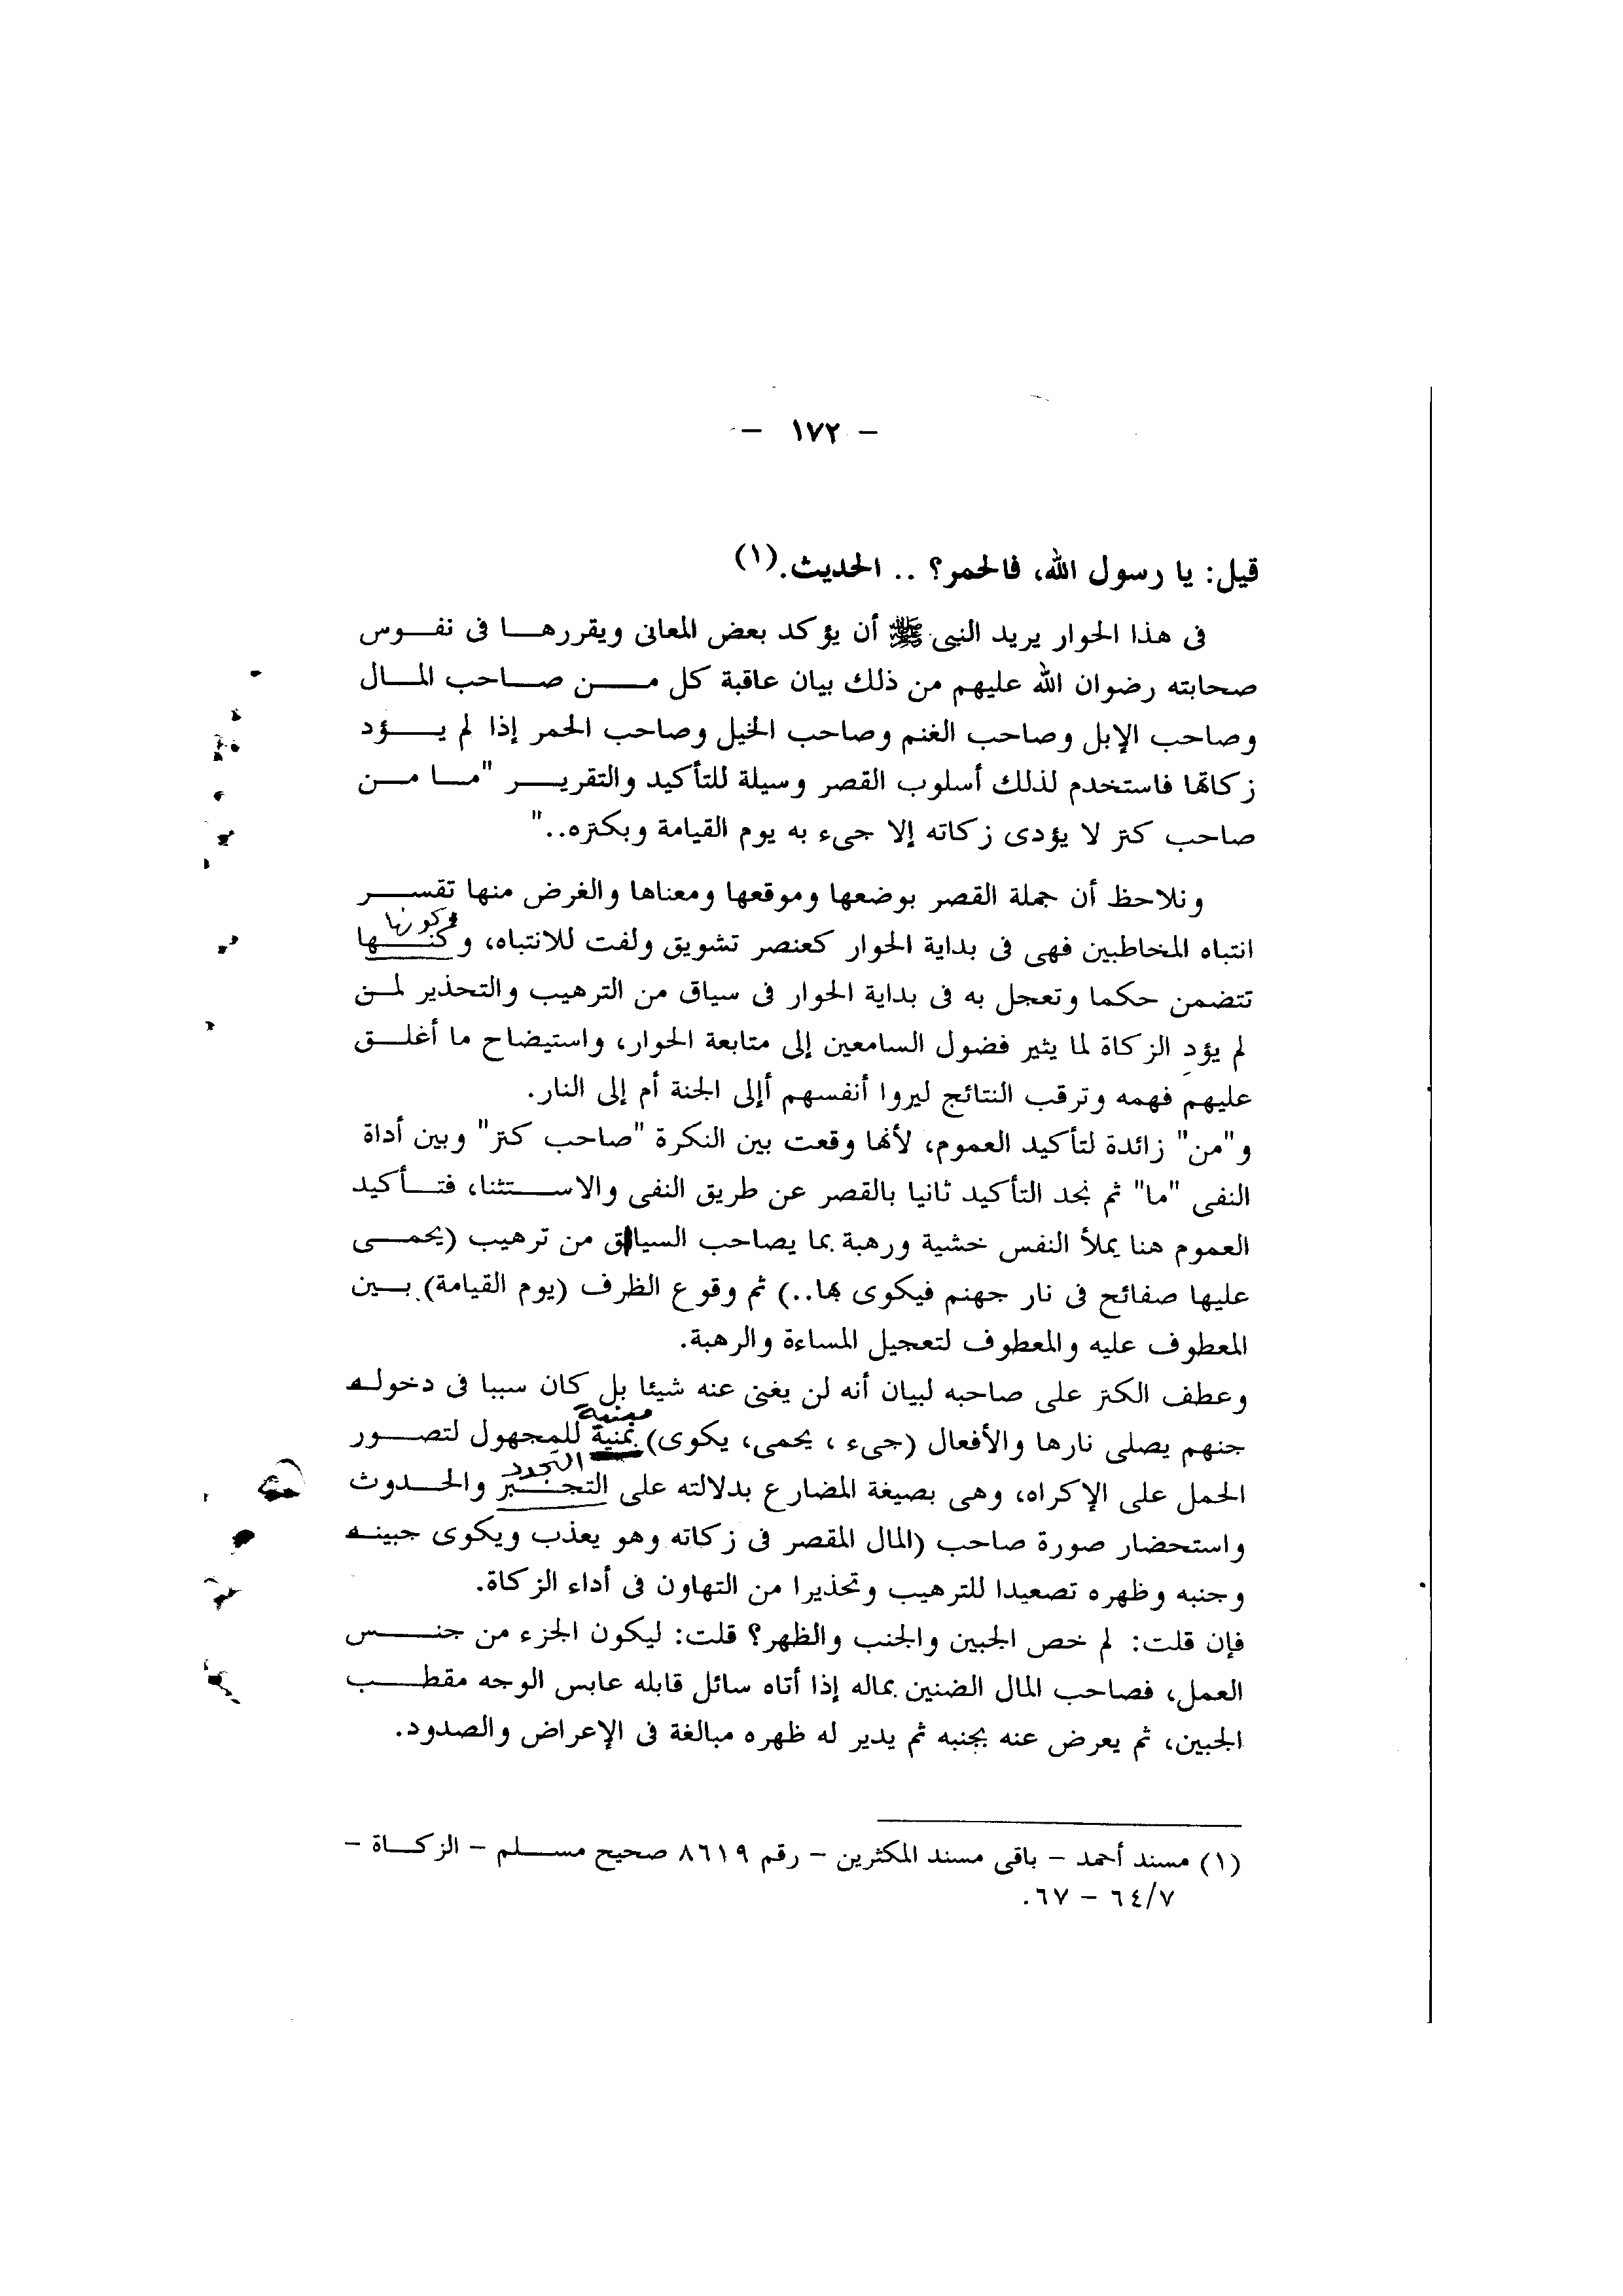 - ١٧٢ -
قيل: يا رسول الله، فالحمر؟ .. الحديث.(١)
فى هذا الحوار يريد النبى ﷺ أن يؤكد بعض المعانى ويقررها فى نفوس
صحابته رضوان الله عليهم من ذلك بيان عاقبة كل من صاحب المال
وصاحب الإبل وصاحب الغنم وصاحب الخيل وصاحب الحمر إذا لم يؤد
زكاتها فاستخدم لذلك أسلوب القصر وسيلة للتأكيد والتقرير "ما من
صاحب كتر لا يؤدى زكاته إلا جىء به يوم القيامة وبكتره.."
ونلاحظ أن جملة القصر بوضعها وموقعها ومعناها والغرض منها تقسر
فى كونها
انتباه المخاطبين فهى فى بداية الحوار كعنصر تشويق ولفت للانتباه، وكنها
تتضمن حكما وتعجل به فى بداية الحوار فى سياق من الترهيب والتحذير لمن
لم يؤد الزكاة لما يثير فضول السامعين إلى متابعة الحوار، واستيضاح ما أغلق
عليهم فهمه وترقب النتائج ليروا أنفسهم أإلى الجنة أم إلى النار.
و"من" زائدة لتأكيد العموم، لأنها وقعت بين النكرة "صاحب كتر" وبين أداة
النفى "ما" ثم نجد التأكيد ثانيا بالقصر عن طريق النفى والاستثنا، فتأكيد
العموم هنا يملأ النفس خشية ورهبة بما يصاحب السياق من ترهيب (يحمى
عليها صفائح فى نار جهنم فيكوى بها..) ثم وقوع الظرف (يوم القيامة) بين
المعطوف عليه والمعطوف لتعجيل المساءة والرهبة.
وعطف الكتر على صاحبه لبيان أنه لن يغنى عنه شيئا بل كان سببا فى دخوله
مبنية
جنهم يصلى نارها والأفعال (جىء ، يحمى، يكوى) بمنية للمجهول لتصور
التجدد
الحمل على الإكراه، وهى بصيغة المضارع بدلالته على التجبر والحدوث
واستحضار صورة صاحب (المال المقصر فى زكاته وهو يعذب ويكوى جبينه
وجنبه وظهره تصعيدا للترهيب وتحذيرا من التهاون فى أداء الزكاة.
فإن قلت: لم خص الجبين والجنب والظهر؟ قلت: ليكون الجزء من جنس
العمل، فصاحب المال الضنين بماله إذا أتاه سائل قابله عابس الوجه مقطب
الجبين، ثم يعرض عنه بجنبه ثم يدير له ظهره مبالغة فى الإعراض والصدود.
(١) مسند أحمد - باقى مسند المكثرين - رقم ٨٦١٩ صحيح مسلم - الزكاة -
٦٤/٧ - ٦٧.